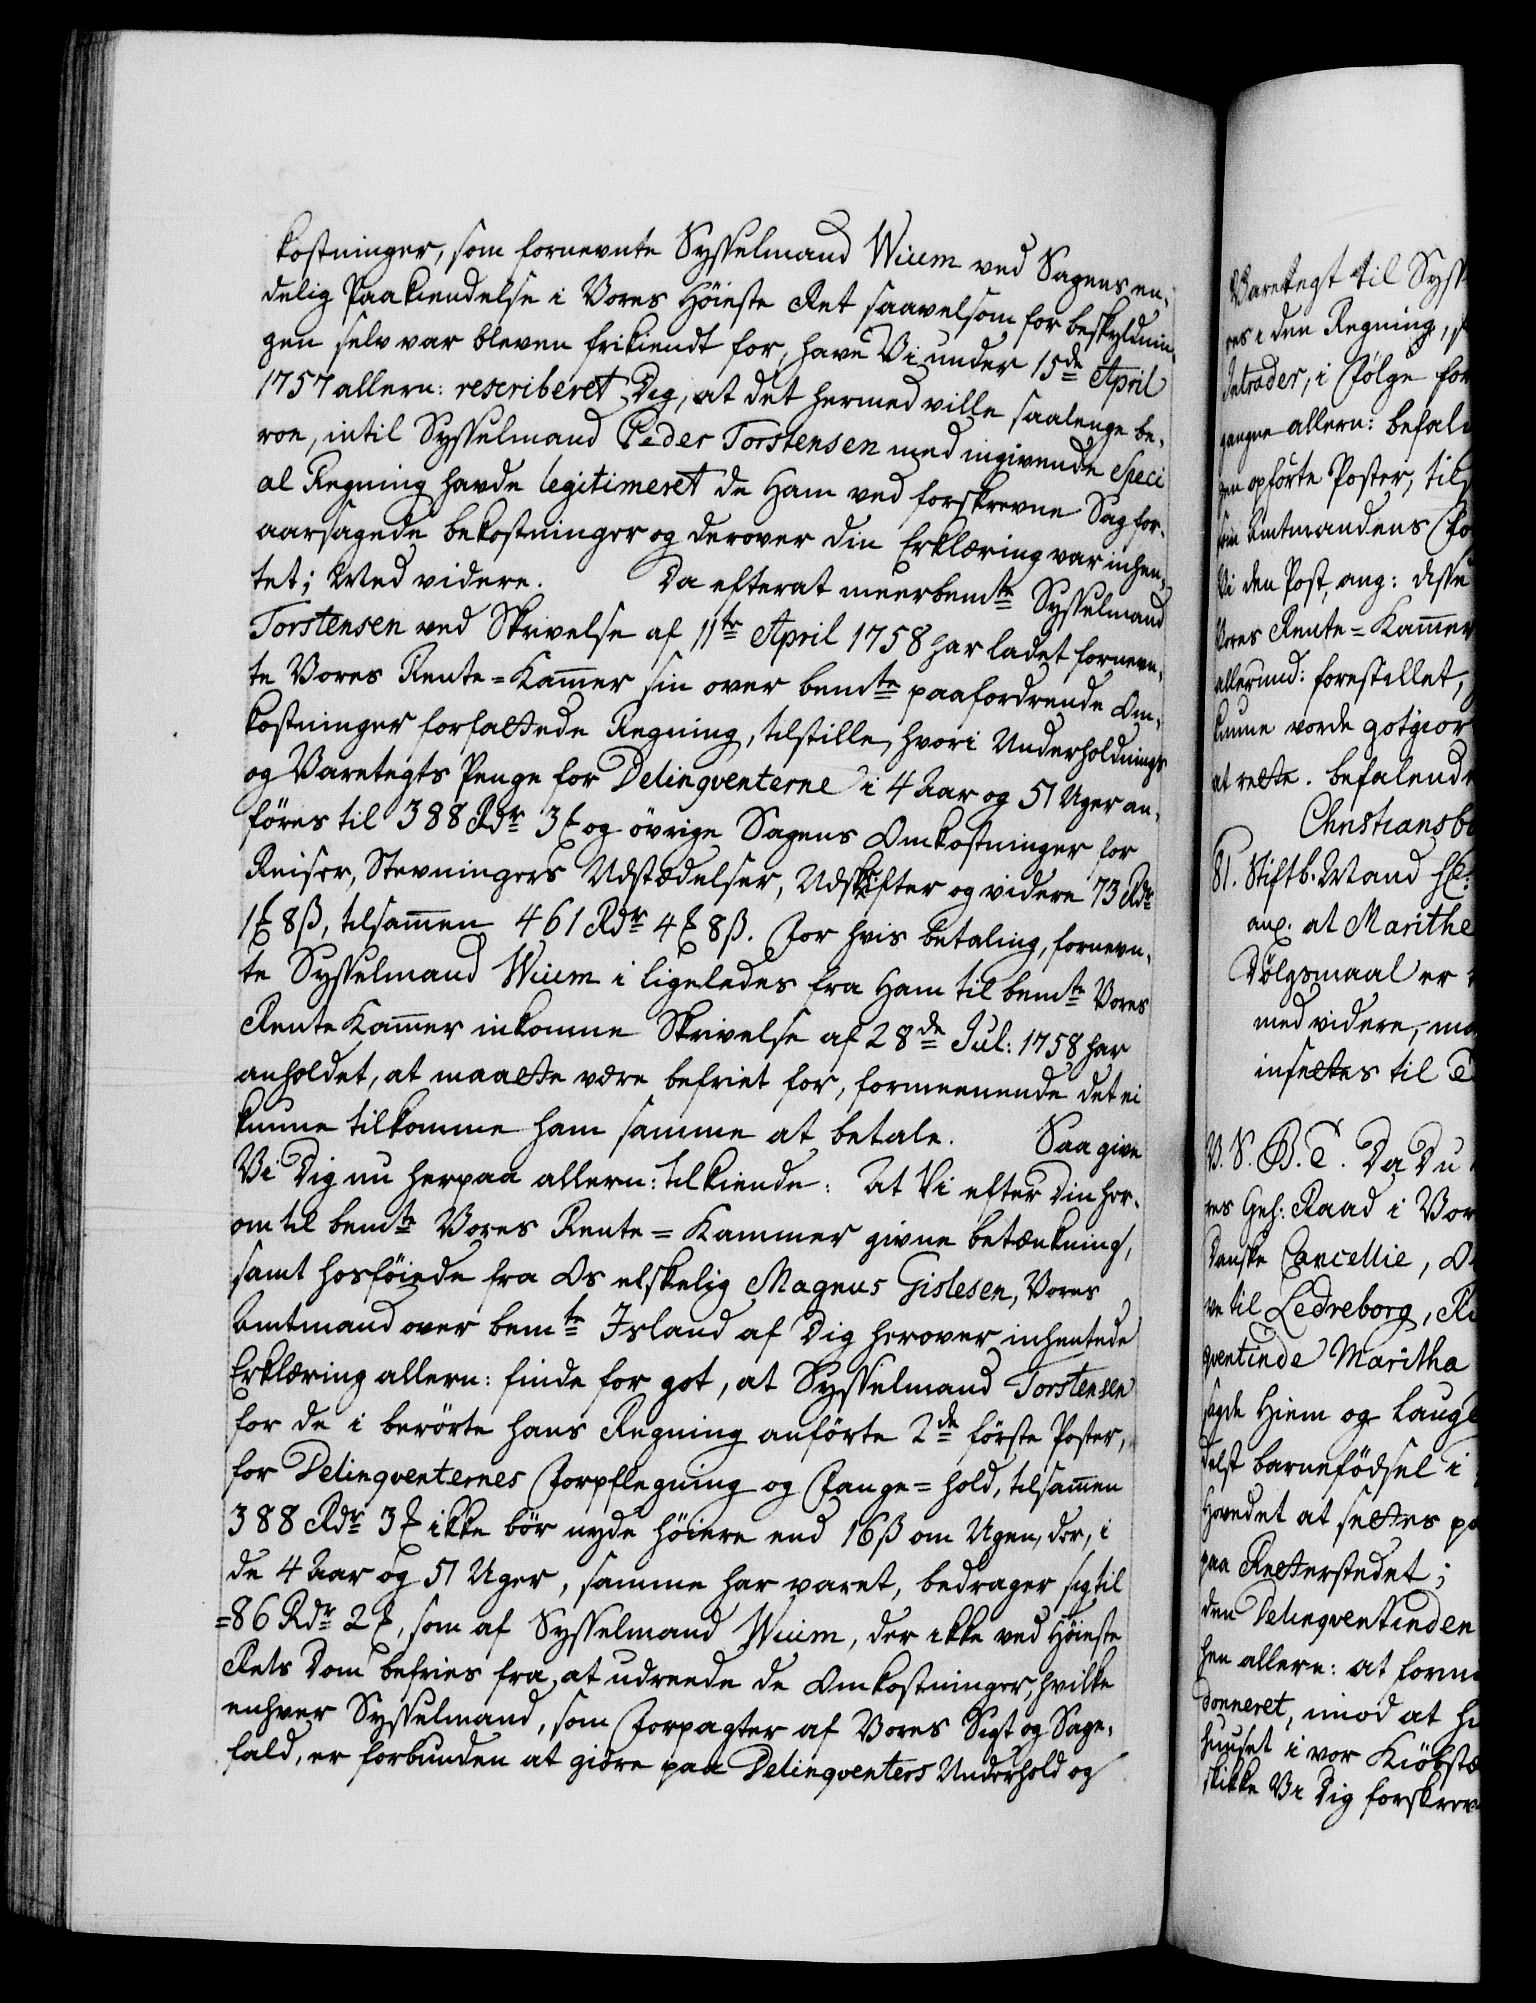 kostninger, som fornevnte Sysselmand Wium ved Sagens en-
delig Paakiendelse i Vores Höieste Ret saavelsom for beskyldnin-
gen selv var bleven frikiendt for, have Vi under 15de April
1757 allern: rescriberet Dig, at det hermed ville saalenge be-
roe, intil Sysselmand Peder Torstensen med ingivende Speci
al Regning havde legitimeret de Ham ved forskrevne Sag for-
aarsagede bekostninger og derover din Erklæring var inhen-
tet; Med videre. Da efterat meerbemte Sysselmand
Torstensen ved Skrivelse af 11te April 1758 har ladet fornevn-
te Vores Rente-Kammer sin over bemte paafordrende Om-
kostninger forfattede Regning, tilstille, hvori Underholdnings
og Varetegts Penge for Delinqventerne i 4 Aar og 51 Uger an-
föres til 388 Rdr 3 ꝣ og övrige Sagens Omkostninger for
Reiser, Stevningers Udstædelser, Udskrifter og videre 73 Rdr
1 ꝣ 8 ß, tilsammen 461 Rdr 4 ꝣ 8 ß. For hvis betaling, fornevn-
te Sysselmand Wium i ligeledes fra Ham til bemte Vores
Rente Kammer inkomne Skrivelse af 28de Jul: 1758 har
anholdet, at maatte være befriet for, formeenende det ei
kunne tilkomme ham samme at betale. Saa give
Vi Dig nu herpaa allern: tilkiende: At Vi efter Din her-
om til bemte Vores Rente-Kammer givne betænkning,
samt hosföiede fra Os elskelig Magnus Gislesen, Vores
Amtmand over bemte Island af Dig herover inhentede
Erklæring allern: finde for got, at Sysselmand Torstensen
for de i berörte hans Regning anförte 2de förste Poster,
for Delinqventernes Forpflegning og Fange-hold, tilsammen
388 Rdr 3 ꝣ ikke bör nyde höiere end 16 ß om Ugen, der, i
de 4 Aar og 51 Uger, samme har varet, bedrager sig til
=86 Rdr 2 ꝣ, som af Sysselmand Wium, der ikke ved Höieste
Rets Dom befries fra, at udreede de Omkostninger, hvilke
enhver Sysselmand, som Forpagter af Vores Sigt og Sage-
fald, er forbunden at giöre paa Delinqventers Underhold og
Varetegt til Syss
res i den Regning, s
Intrader, i Fölge for
gangne allern: befal
gen opförte Poster, til
som Amtmandens Fo
Vi den Post, ang: disse
Vores Rente-Kammer
allerund: forestillet,
kunne vorde gotgior
at rette. befalende
Christiansb
81. Stiftb. Mand
anx. at Marithe
Dölgsmaal er
med videre, ma
insettes til
V. S. B. T. Da Du
res Geh: Raad i Vor
Danske Cancellie, O
ve til Ledreborg, Ri
qventinde Maritha
sögte Hiem og Laug
delst barnefödsel i
Hovedet at settes p
paa Retterstedet;
den Delinqventinden
hen allern: at form
donneret, imod at h
huuset i vor Kiöbstæ
skikke Vi Dig forskrev